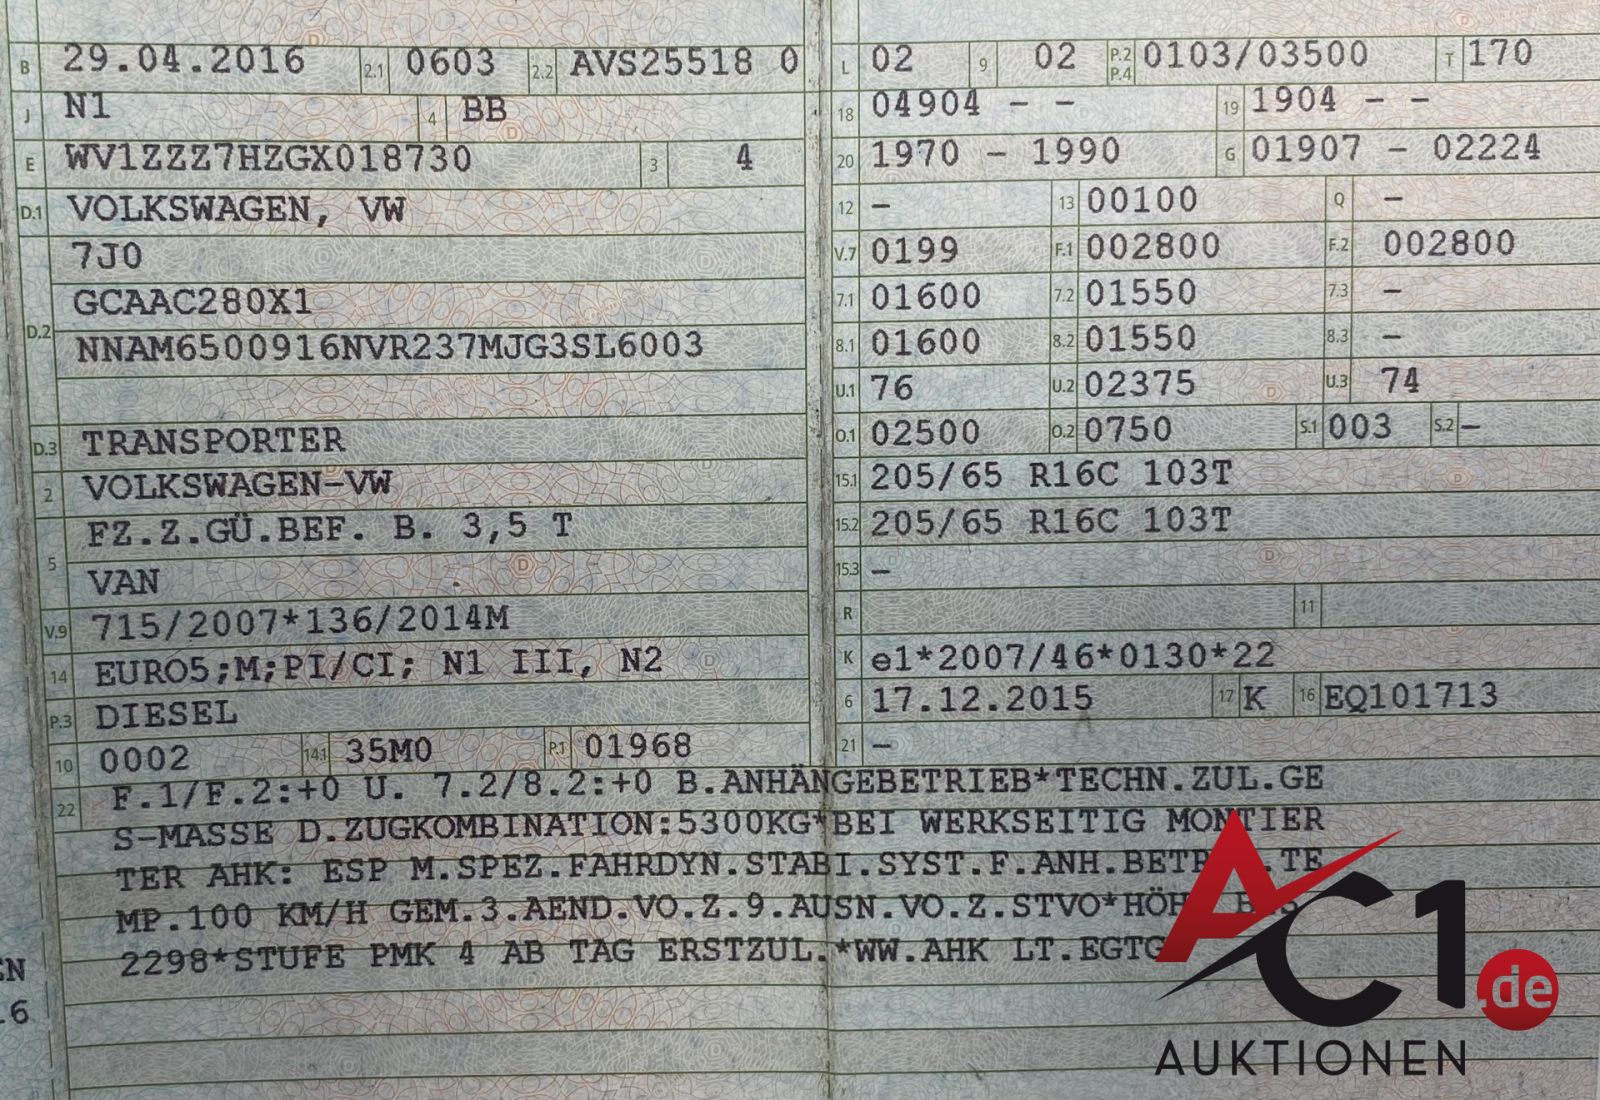 B 29.04.2016 2.1 0603 2.2 AVS25518 0
J N1 4 BB
E WV1ZZZ7HZGX018730 3 4
D.1 VOLKSWAGEN, VW
7J0
D.2 GCAAC280X1
NNAM6500916NVR237MJG3SL6003
D.3 TRANSPORTER
2 VOLKSWAGEN-VW
5 FZ.Z.GÜ.BEF. B. 3,5 T
VAN
V.9 715/2007*136/2014M
14 EURO5;M;PI/CI; N1 III, N2
P.3 DIESEL
10 0002 14.1 35M0 P.1 01968
L 02 9 02 P.2 P.4 0103/03500 T 170
18 04904 - - 19 1904 - -
20 1970 - 1990 G 01907 - 02224
12 - 13 00100 Q -
V.7 0199 F.1 002800 F.2 002800
7.1 01600 7.2 01550 7.3 -
8.1 01600 8.2 01550 8.3 -
U.1 76 U.2 02375 U.3 74
O.1 02500 O.2 0750 S.1 003 S.2 -
15.1 205/65 R16C 103T
15.2 205/65 R16C 103T
15.3 -
R 11
K e1*2007/46*0130*22
6 17.12.2015 17 K 16 EQ101713
21 -
22 F.1/F.2:+0 U. 7.2/8.2:+0 B.ANHÄNGEBETRIEB*TECHN.ZUL.GE
S-MASSE D.ZUGKOMBINATION:5300KG*BEI WERKSEITIG MONTIER
TER AHK: ESP M.SPEZ.FAHRDYN.STABI.SYST.F.ANH.BETR .TE
MP.100 KM/H GEM.3.AEND.VO.Z.9.AUSN.VO.Z.STVO*HÖH
2298*STUFE PMK 4 AB TAG ERSTZUL.*WW.AHK LT.EGTG
EN
.6
AC1.de
AUKTIONEN